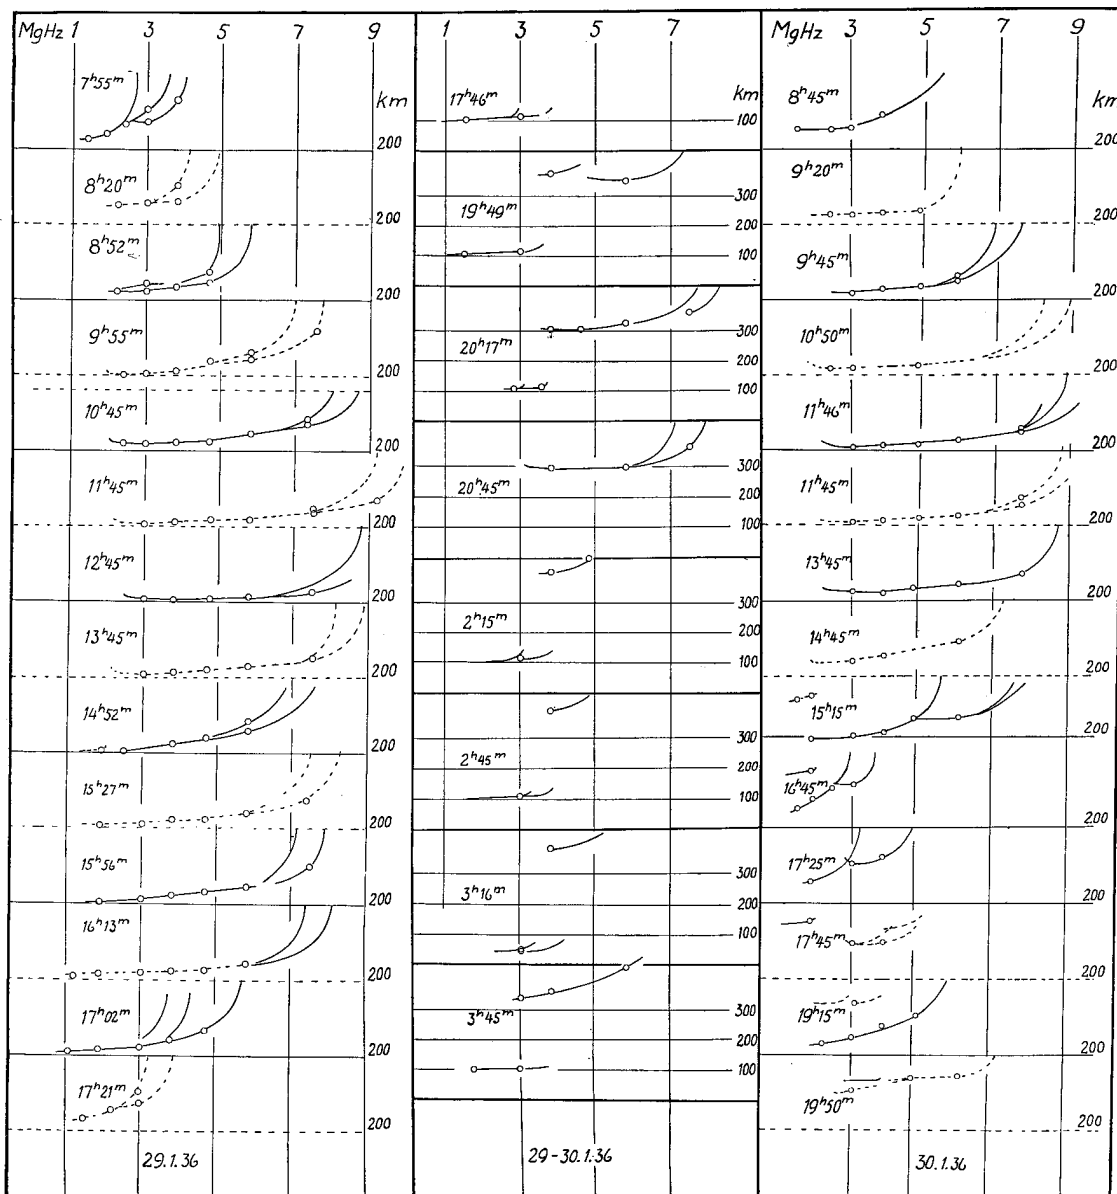 MgHz 1 3 5 7 9
km
7ʰ55ᵐ
200
8ʰ20ᵐ
200
8ʰ52ᵐ
200
9ʰ55ᵐ
200
10ʰ45ᵐ
200
11ʰ45ᵐ
200
12ʰ45ᵐ
200
13ʰ45ᵐ
200
14ʰ52ᵐ
200
15ʰ27ᵐ
200
15ʰ56ᵐ
200
16ʰ13ᵐ
200
17ʰ02ᵐ
200
17ʰ21ᵐ
200
29.1.36
1 3 5 7
km
17ʰ46ᵐ
100
300
19ʰ49ᵐ
200
100
300
20ʰ17ᵐ
200
100
300
20ʰ45ᵐ
200
100
300
2ʰ15ᵐ
200
100
300
2ʰ45ᵐ
200
100
300
3ʰ16ᵐ
200
100
300
3ʰ45ᵐ
200
100
29-30.1.36
MgHz 3 5 7 9
km
8ʰ45ᵐ
200
9ʰ20ᵐ
200
9ʰ45ᵐ
200
10ʰ50ᵐ
200
11ʰ46ᵐ
200
11ʰ45ᵐ
200
13ʰ45ᵐ
200
14ʰ45ᵐ
200
15ʰ15ᵐ
200
16ʰ45ᵐ
200
17ʰ25ᵐ
200
17ʰ45ᵐ
200
19ʰ15ᵐ
200
19ʰ50ᵐ
200
30.1.36